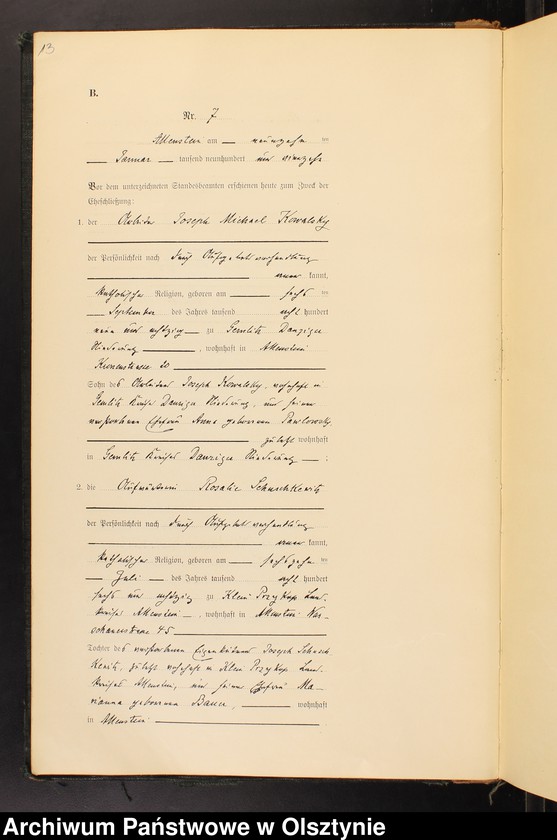 13
B.
Nr. 7
Allenstein am neunzehn ten
Januar tausend neunhundert und vierzehn
Vor dem unterzeichneten Standesbeamten erschienen heute zum Zweck der
Eheschließung:
1. der Arbeiter Joseph Michael Kowalsky
der Persönlichkeit nach durch Aufgebotsverhandlung
anerkannt,
katholischer Religion, geboren am sechs ten
September des Jahres tausend acht hundert
neun und achtzig zu Gemlitz Danziger
Niederung, wohnhaft in Allenstein
Kronenstrasse 20
Sohn des Arbeiters Joseph Kowalsky, wohnhaft in
Gemlitz Kreises Danziger Niederung, und seiner
verstorbenen Ehefrau Anna geborenen Pawlowsky,
zuletzt wohnhaft
in Gemlitz Kreises Danziger Niederung ;
2. die Aufwärterin Rosalie
der Persönlichkeit nach durch Aufgebotsverhandlung
anerkannt,
katholischer Religion, geboren am sechszehn ten
Juli des Jahres tausend acht hundert
sechs und achtzig zu Klein Przykop Land-
kreises Allenstein, wohnhaft in Allenstein War-
schauerstrasse 45
Tochter des verstorbenen Eigenkätners Joseph
zuletzt wohnhaft in Klein Przykop Land-
kreises Allenstein, und seiner Ehefrau Ma-
rianna geborenen wohnhaft
in Allenstein
Archiwum Państwowe w Olsztynie